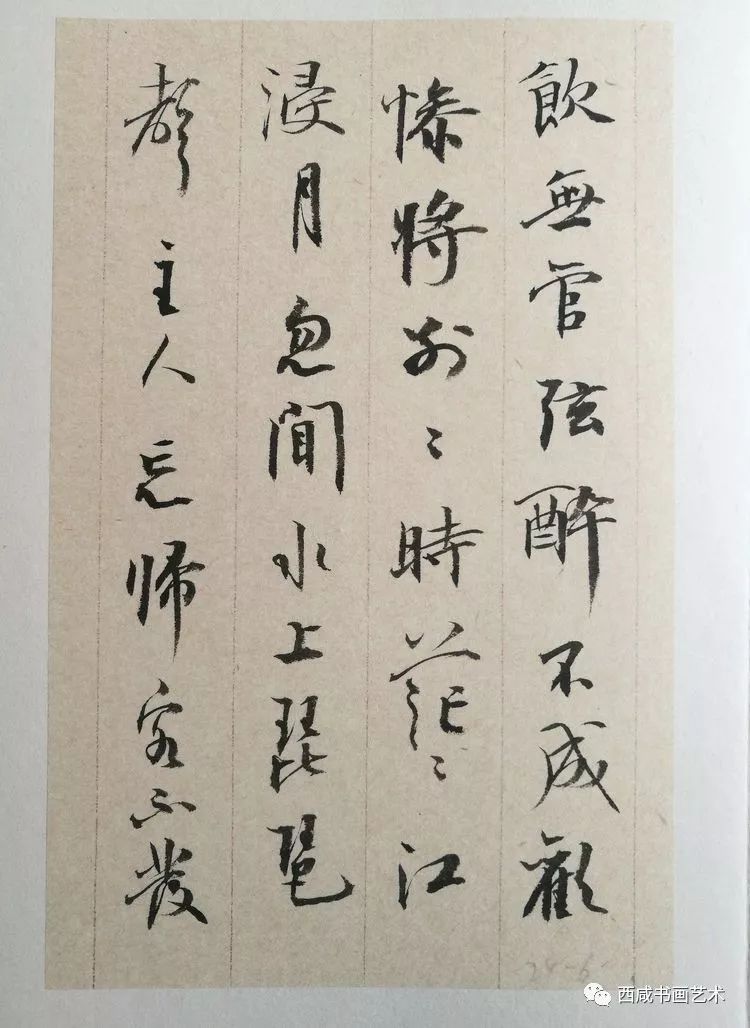 飲無管弦醉不成歡
惨將別〻時茫〻江
浸月忽聞水上琵琶
聲主人忘歸客不發
西咸书画艺术